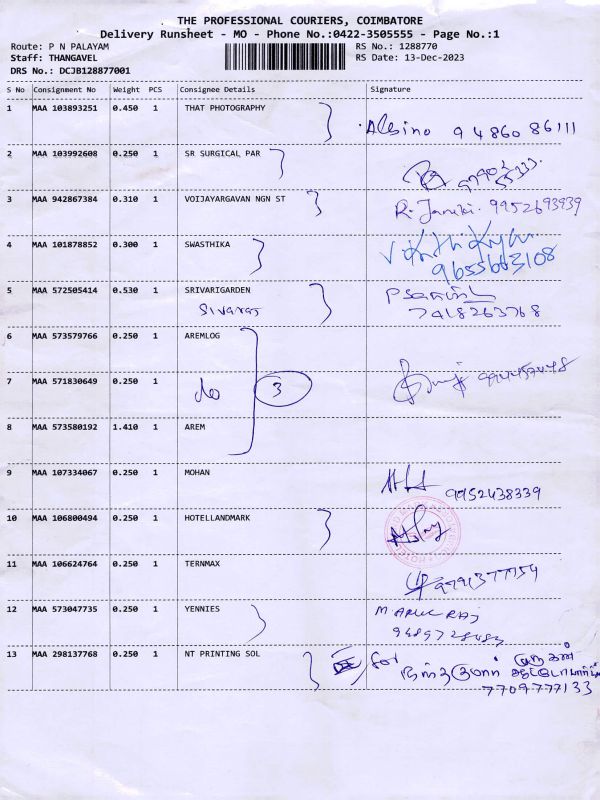 THE PROFESSIONAL COURIERS, COIMBATORE
Delivery Runsheet - MO - Phone No.:0422-3505555 - Page No.:1
Route: P N PALAYAM
Staff: THANGAVEL
DRS No.: DCJB128877001
RS No.: 1288770
RS Date: 13-Dec-2023
S No Consignment No Weight PCS Consignee Details Signature
1 MAA 103893251 0.450 1 THAT PHOTOGRAPHY
Albino 9486086111
2 MAA 103992608 0.250 1 SR SURGICAL PAR
3 MAA 942867384 0.310 1 VOIJAYARGAVAN NGN ST
R. Janaki. 9952693939
4 MAA 101878852 0.300 1 SWASTHIKA
9655663108
5 MAA 572505414 0.530 1 SRIVARIGARDEN
Sivaraj
7418263768
6 MAA 573579766 0.250 1 AREMLOG
7 MAA 571830649 0.250 1
do 3
8 MAA 573580192 1.410 1 AREM
9 MAA 107334067 0.250 1 MOHAN
9952438339
10 MAA 106800494 0.250 1 HOTELLANDMARK
11 MAA 106624764 0.250 1 TERNMAX
9791377754
12 MAA 573047735 0.250 1 YENNIES
M ARUL RAJ
13 MAA 298137768 0.250 1 NT PRINTING SOL
for
7709777133